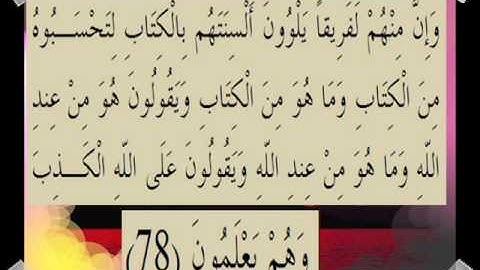 وَإِنَّ مِنْهُمْ لَفَرِيقاً يَلْوُونَ أَلْسِنَتَهُم بِالْكَتَابِ لِتَحْسَــبُوهُ
مِنَ الْكِتَابِ وَمَا هُوَ مِنَ الْكِتَابِ وَيَقُولُونَ هُوَ مِنْ عِندِ
اللّهِ وَمَا هُوَ مِنْ عِندِ اللّهِ وَيَقُولُونَ عَلَى اللّهِ الْكَــذِبَ
وَهُمْ يَعْلَمُونَ (78)